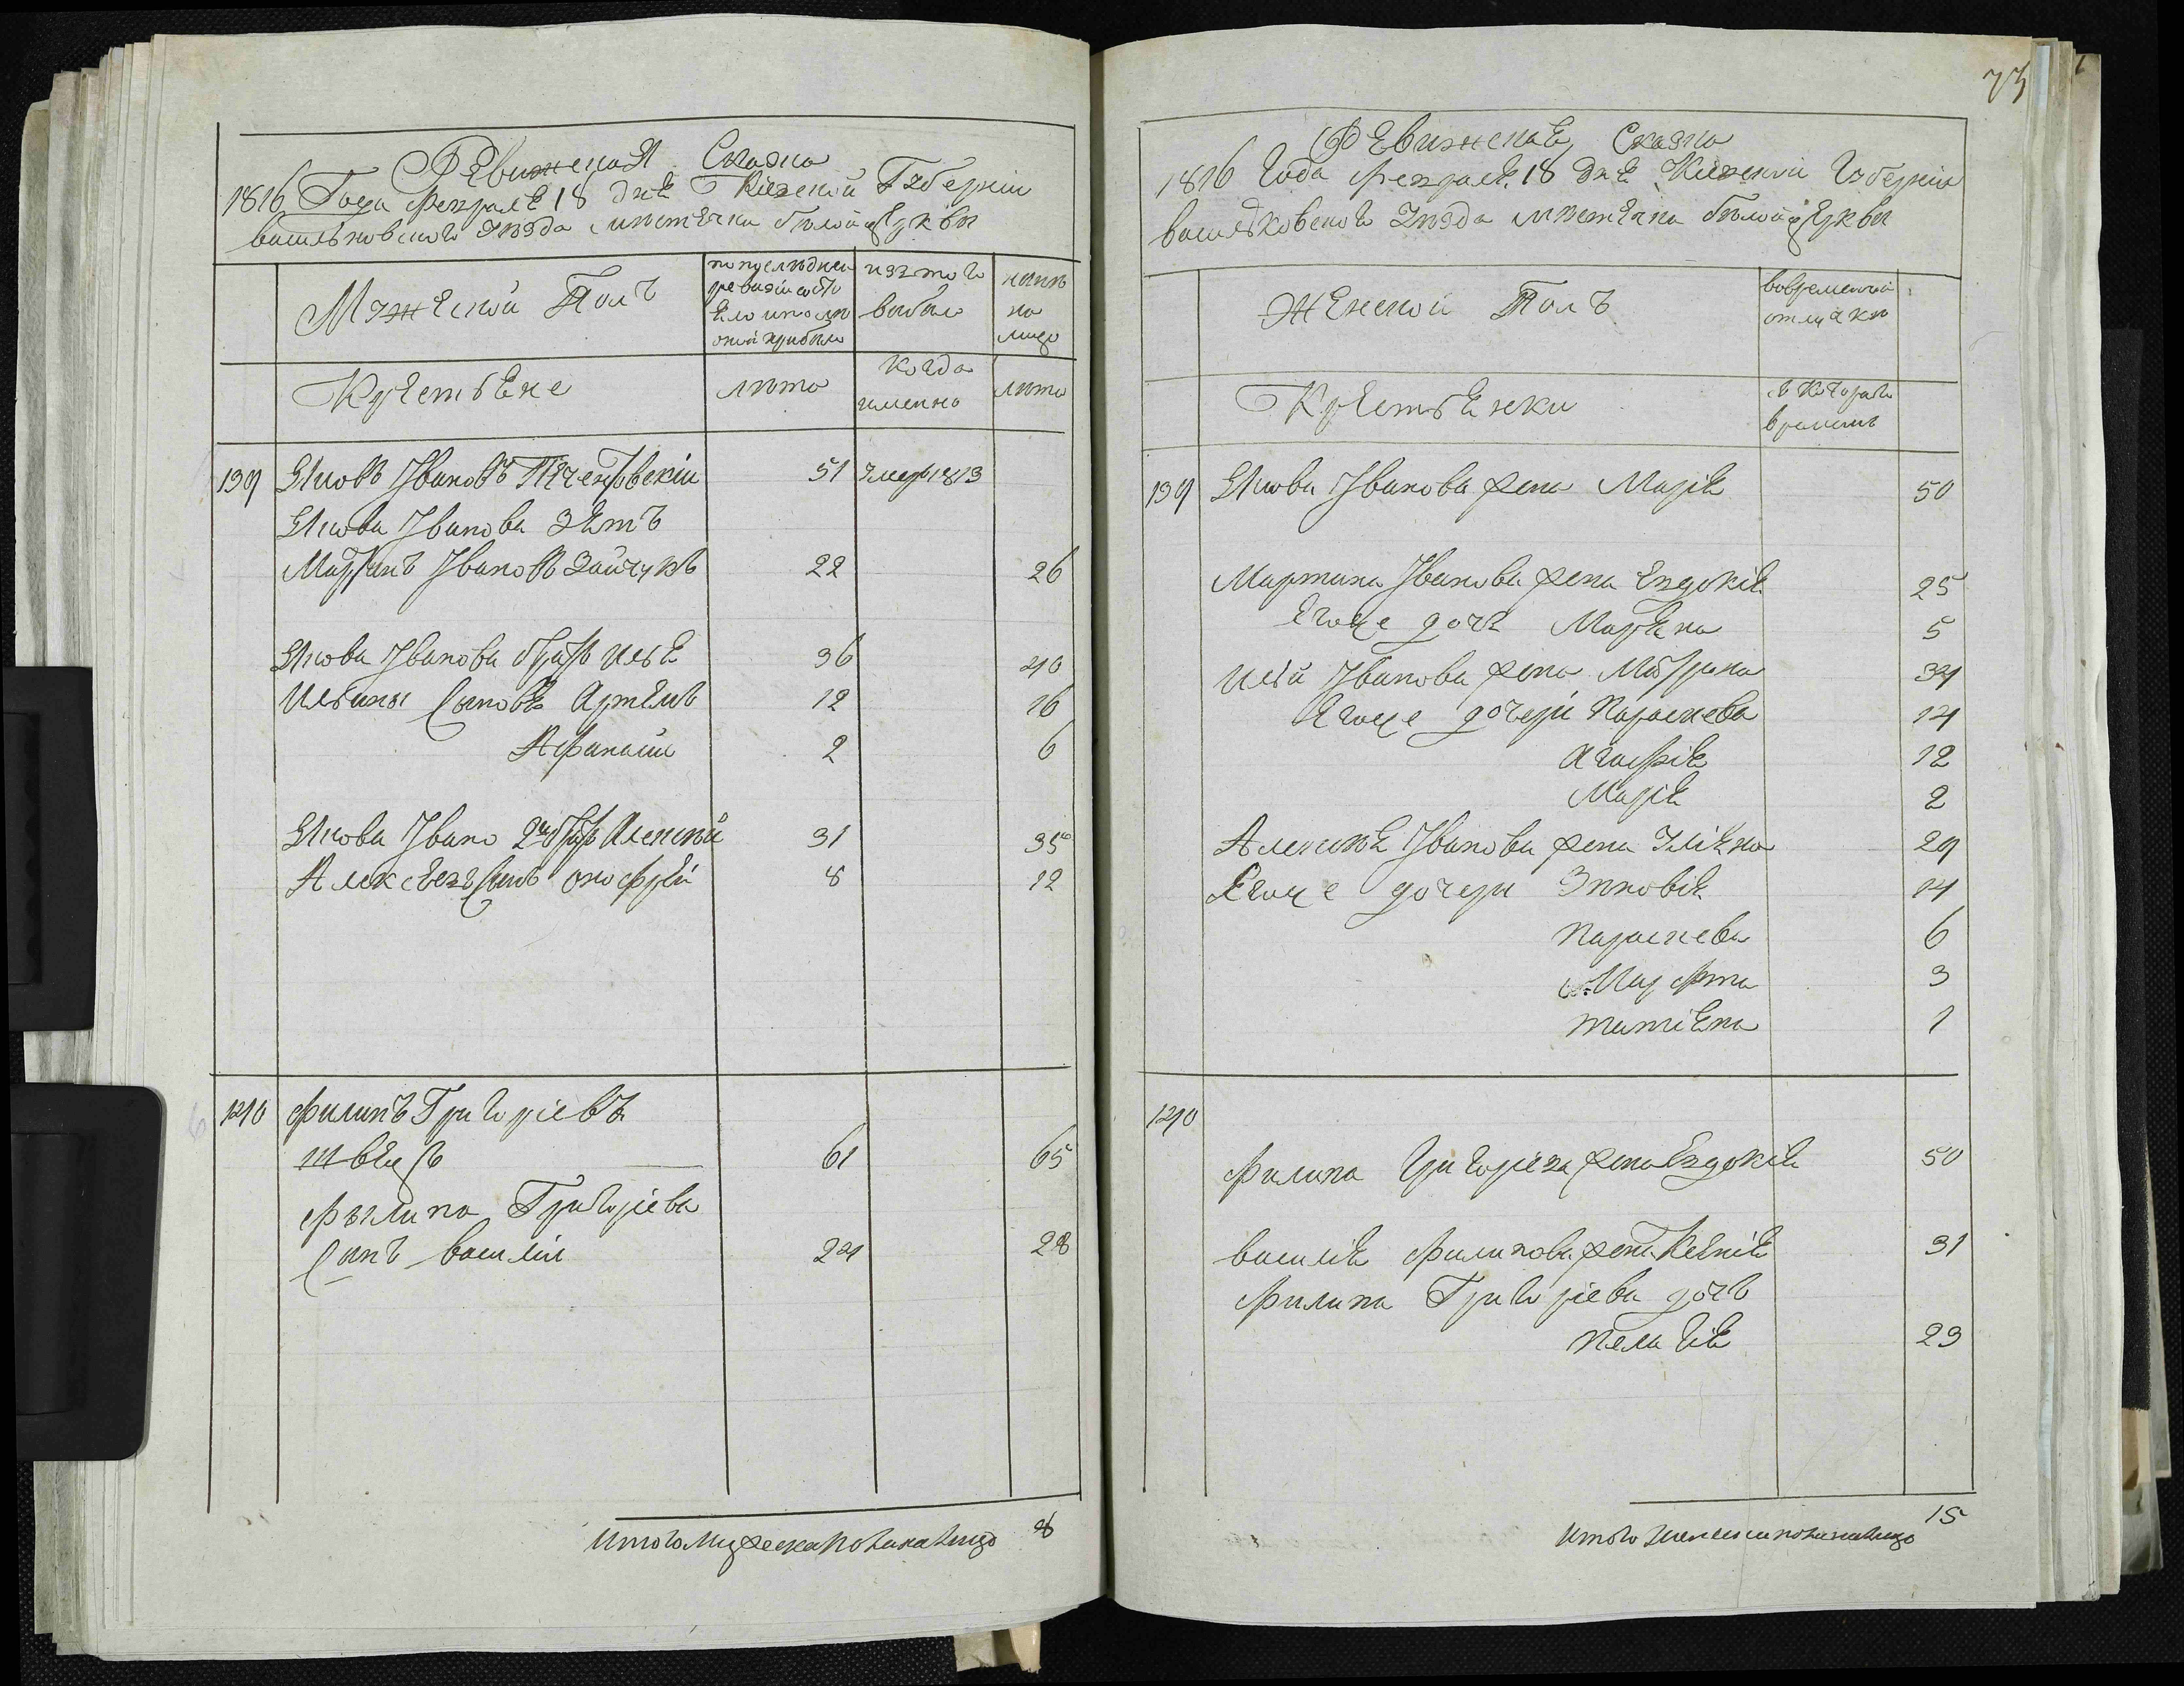 73
Ревижская Сказка
1816 Года февраля 18 дня Киевской Губернии
васильковского уезда местечка белой церкви
Мужеской Полъ
по последней
ревизии состо
яло и после
оной прибыло
изъ того
выбыло
ныне
на
лицо
Крестьяне
лета
Когда
именно
лета
139 Яковъ Ивановъ 51 умер 1813
Якова Иванова зять
Мартинъ Ивановъ Зайчукъ 22 26
Якова Иванова братъ Илья 36 40
Ильины Сыновья Артемъ 12 16
Афанасий 2 6
Якова Ивано 2й братъ Алексей 31 35
Алексеевъ Сынъ онофрей 8 12
140 Филипъ Григориевъ
швецъ 61 65
Филипа Григориева
Сынъ василий 24 28
Итого Мужеска пола на лицо 8
Ревижская Сказка
1816 Года февраля 18 дня Киевской Губернии
васильковского уезда местечка белой церкви
Женской Полъ
во временной
отлучке
Крестьянки
с которого
времени
139 Якова Иванова жена Мария 50
Мартина Иванова жена Евдокия 25
Его же дочь Марьяна 5
Ильи Иванова жена Мотрона 34
Его же дочери Параскева 14
Агафия 12
Мария 2
Алексея Иванова жена Улияна 29
Его же дочери Зиновия 14
Параскева 6
Марфта 3
татияна 1
140
Филипа Григориева жена Евдокия 50
василия Филипова жена Ксения 31
Филипа Григориева дочь
Пелагия 23
Итого женска пола на лицо 15